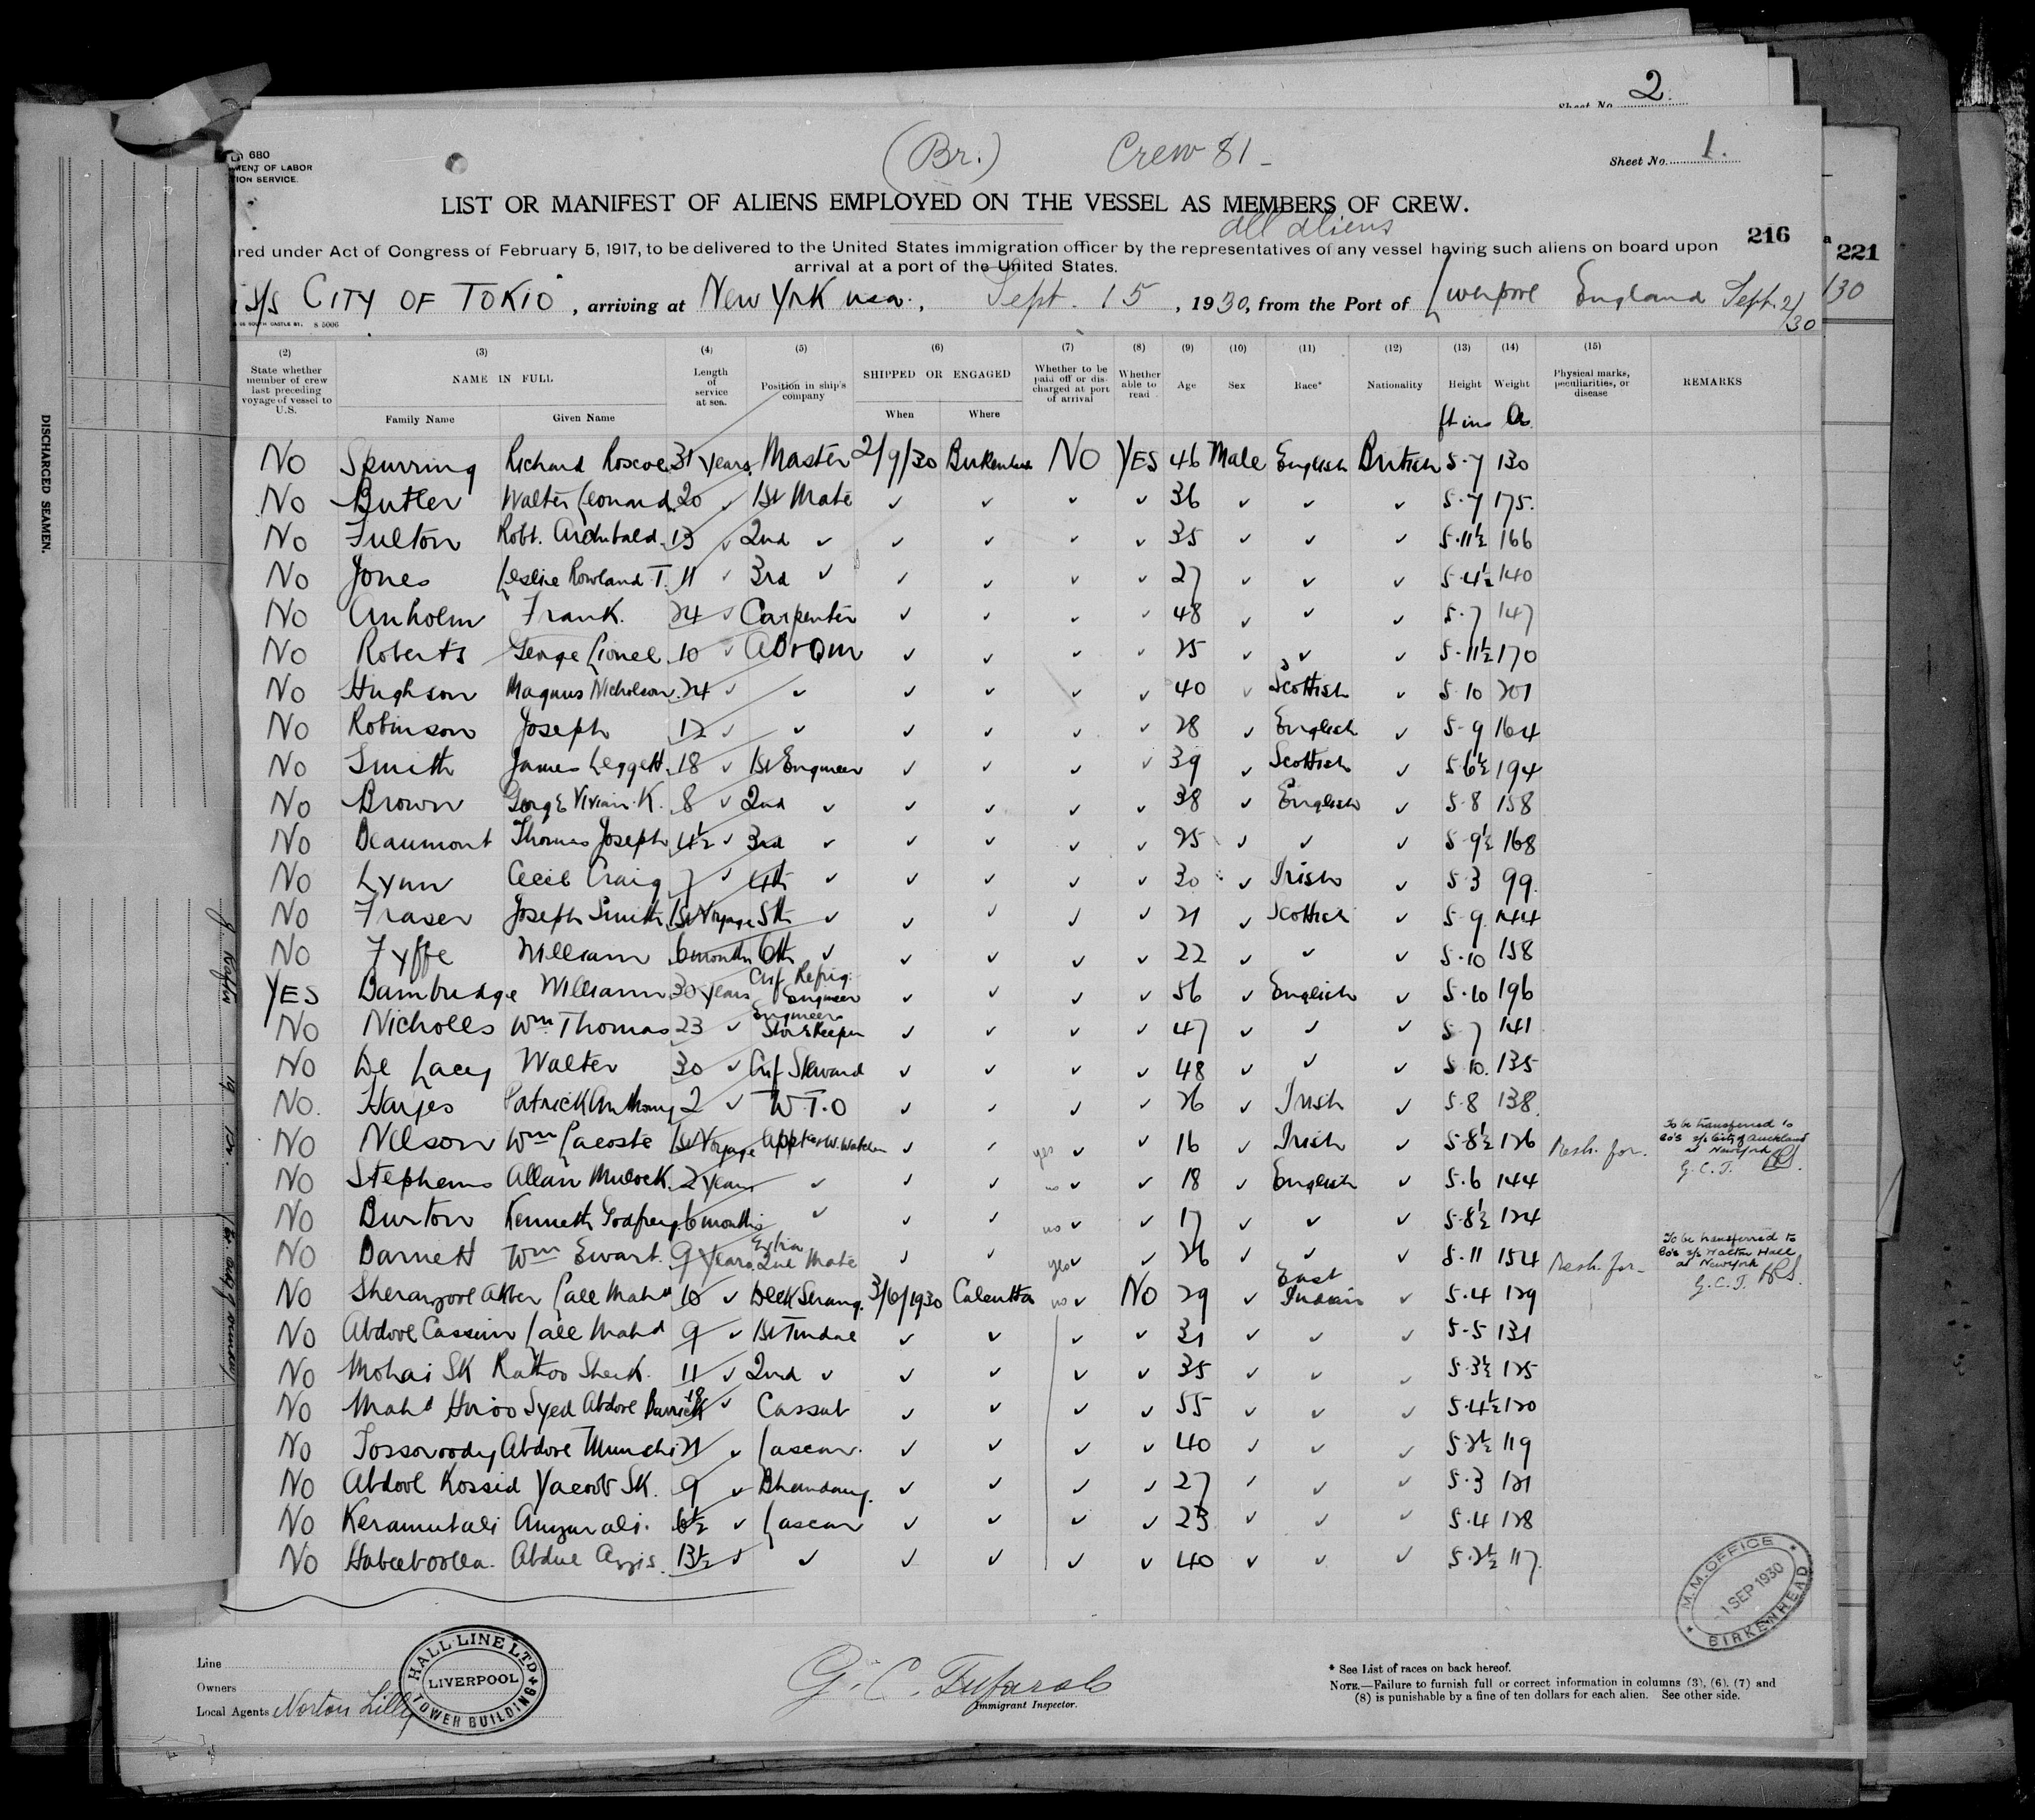 Sheet No. 2.
680
MENT OF LABOR
TION SERVICE.
(Br.) Crew 81 -
Sheet No. 1.
LIST OR MANIFEST OF ALIENS EMPLOYED ON THE VESSEL AS MEMBERS OF CREW.
all aliens
216
221
ired under Act of Congress of February 5, 1917, to be delivered to the United States immigration officer by the representatives of any vessel having such aliens on board upon
arrival at a port of the United States.
S/S CITY OF TOKIO, arriving at New York usa., Sept. 15, 1930, from the Port of Liverpool England Sept. 2/30
130
(2) (3) (4) (5) (6) (7) (8) (9) (10) (11) (12) (13) (14) (15)
State whether member of crew last preceding voyage of vessel to U.S. NAME IN FULL Length of service at sea. Position in ship's company SHIPPED OR ENGAGED Whether to be paid off or discharged at port of arrival Whether able to read Age Sex Race* Nationality Height Weight Physical marks, peculiarities, or disease REMARKS
Family Name Given Name When Where ft ins lbs.
No Spurring Richard Roscoe 31 years Master 2/9/30 Birkenhead NO YES 46 Male English British 5.7 130
No Butler Walter Leonard 20 ✓ 1st Mate ✓ ✓ ✓ ✓ 36 ✓ ✓ ✓ 5.7 175.
No Fulton Robt. Archibald 13 ✓ 2nd ✓ ✓ ✓ ✓ ✓ 35 ✓ ✓ ✓ 5.11½ 166
No Jones Leslie Rowland T. 11 ✓ 3rd ✓ ✓ ✓ ✓ ✓ 27 ✓ ✓ ✓ 5.4½ 140
No Anholm Frank. 24 ✓ Carpenter ✓ ✓ ✓ ✓ 48 ✓ ✓ ✓ 5.7 147
No Roberts George Lionel 10 ✓ AB & QM ✓ ✓ ✓ ✓ 25 ✓ ✓ ✓ 5.11½ 170
No Hughson Magnus Nicholson 24 ✓ ✓ ✓ ✓ ✓ ✓ 40 ✓ Scottish ✓ 5.10 201
No Robinson Joseph 12 ✓ ✓ ✓ ✓ ✓ 28 ✓ English ✓ 5.9 164
No Smith James Leggett 18 ✓ 1st Engineer ✓ ✓ ✓ ✓ 39 ✓ Scottish ✓ 5.6½ 194
No Brown George Vivian K. 8 ✓ 2nd ✓ ✓ ✓ ✓ ✓ 38 ✓ English ✓ 5.8 158
No Beaumont Thomas Joseph 4½ ✓ 3rd ✓ ✓ ✓ ✓ ✓ 25 ✓ ✓ ✓ 5.9½ 168
No Lynn Cecil Craig 7 ✓ 4th ✓ ✓ ✓ ✓ ✓ 30 ✓ Irish ✓ 5.3 99.
No Fraser Joseph Smith 1st Voyage 5th ✓ ✓ ✓ ✓ ✓ 21 ✓ Scottish ✓ 5.9 144
No Fyffe William 6 months 6th ✓ ✓ ✓ ✓ ✓ 22 ✓ ✓ ✓ 5.10 158
YES Bambridge William 30 years Chf Refrig. Engineer ✓ ✓ ✓ ✓ 56 ✓ English ✓ 5.10 196
No Nicholls Wm Thomas 23 ✓ Engineer Storekeeper ✓ ✓ ✓ ✓ 47 ✓ ✓ ✓ 5.7 141
No De Lacey Walter 30 ✓ Chf Steward ✓ ✓ ✓ ✓ 48 ✓ ✓ ✓ 5.10. 135
No. Hayes Patrick Anthony 2 ✓ W.T.O ✓ ✓ ✓ ✓ 26 ✓ Irish ✓ 5.8 138
No Nelson Wm Lacoste 1st Voyage ✓ ✓ yes ✓ ✓ 16 ✓ Irish ✓ 5.8½ 126 Resh. for. To be transferred to Co's s/s City of Auckland at New York G.C.T.
No Stephens Allan Mulock 2 years ✓ ✓ ✓ no ✓ ✓ 18 ✓ English ✓ 5.6 144
No Burton Kenneth Godfrey 6 months ✓ ✓ ✓ no ✓ ✓ 17 ✓ ✓ ✓ 5.8½ 124
No Barnett Wm Ewart. 9 years Extra 2nd Mate ✓ ✓ yes ✓ ✓ 26 ✓ ✓ ✓ 5.11 154 Resh. for. To be transferred to Co's s/s Walton Hall at New York G.C.T.
No Sheranzoor Akber Lall Mahd 10 ✓ Deck Serang. 3/6/1930 Calcutta no ✓ No 29 ✓ East Indian ✓ 5.4 129
No Abdool Cassim Lall Mahd 9 ✓ 1st Tindal ✓ ✓ ✓ ✓ 31 ✓ ✓ ✓ 5.5 131
No Mohai SK Rattoo Sheik. 11 ✓ 2nd ✓ ✓ ✓ ✓ ✓ 35 ✓ ✓ ✓ 5.3½ 125
No Mahd Syed Abdool 18 ✓ Cassab ✓ ✓ ✓ ✓ 55 ✓ ✓ ✓ 5.4½ 120
No Tossoroody Abdool Munshi 21 ✓ Lascar. ✓ ✓ ✓ ✓ 40 ✓ ✓ ✓ 5.2½ 119
No Abdool Kossid Yacoob SK. 9 ✓ Bhandary. ✓ ✓ ✓ ✓ 27 ✓ ✓ ✓ 5.3 121
No Keramutali Amzarali. 6½ ✓ Lascar ✓ ✓ ✓ ✓ 23 ✓ ✓ ✓ 5.4 128
No Habeeboolla. Abdul Azzis. 13½ ✓ ✓ ✓ ✓ ✓ ✓ 40 ✓ ✓ ✓ 5.2½ 117.
M.M. OFFICE
-1 SEP 1930
BIRKENHEAD
Line
Owners
Local Agents Norton Lilly
HALL LINE LTD
LIVERPOOL
TOWER BUILDING
G. C.
Immigrant Inspector.
* See List of races on back hereof.
NOTE.—Failure to furnish full or correct information in columns (3), (6), (7) and
(8) is punishable by a fine of ten dollars for each alien. See other side.
DISCHARGED SEAMEN.